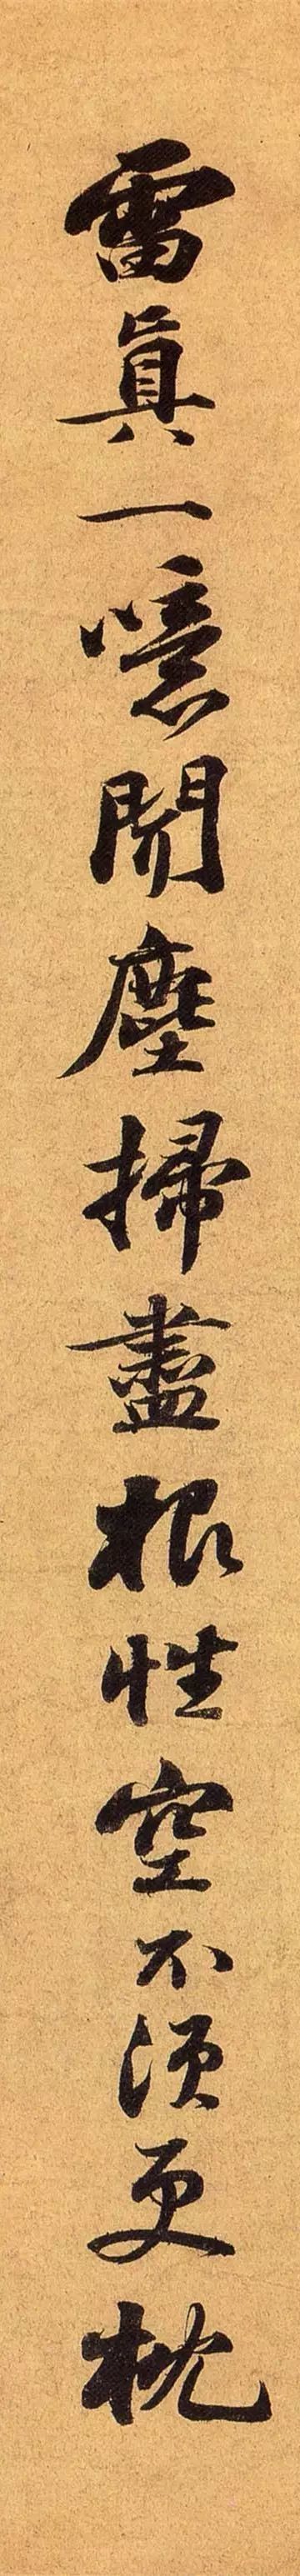 雷真一噫聞塵掃盡根性空不須更枕